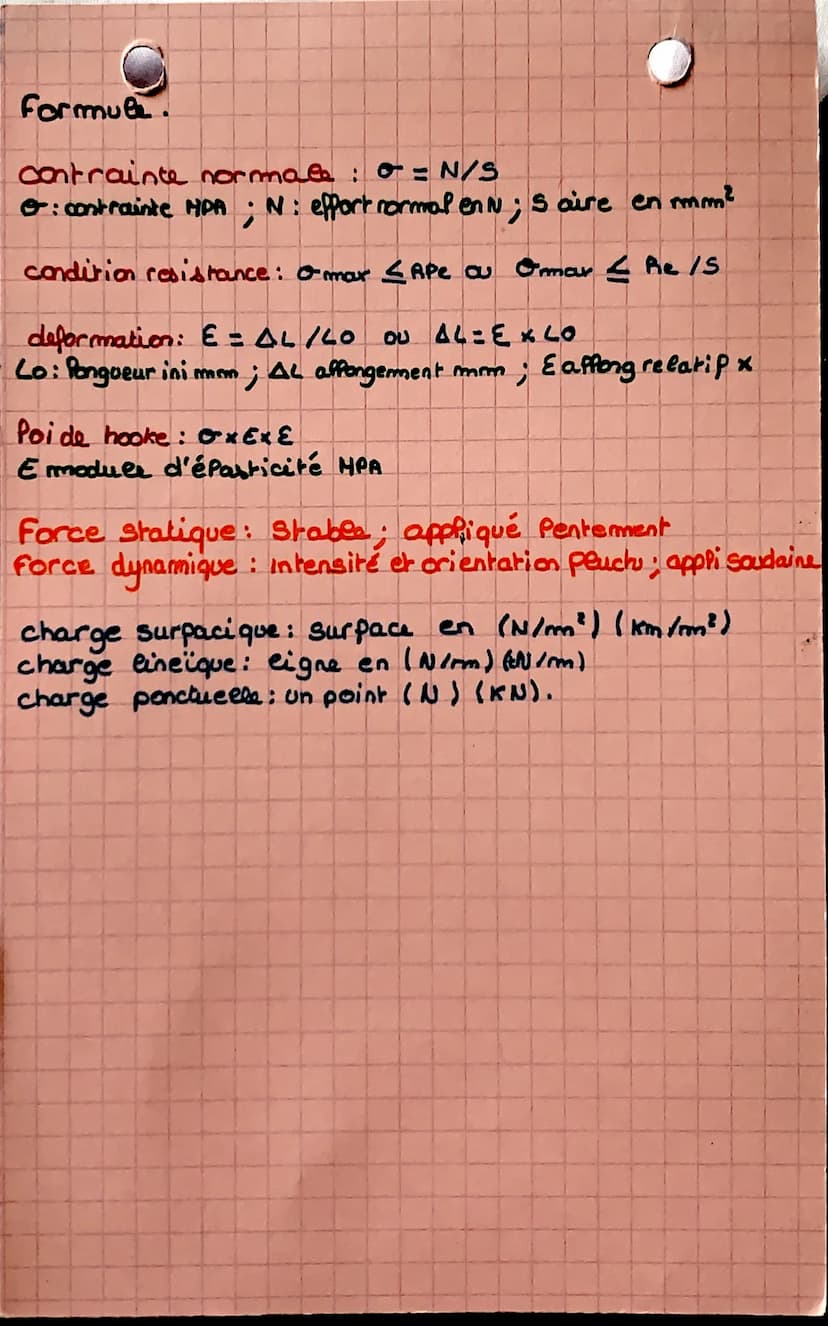 Formule.
contrainte normale : σ = N/S
σ : contrainte MPA ; N : effort normal en N ; S aire en mm²
condition resistance : σmax ≤ RPe ou σmax ≤ Re /S
deformation : ε = ΔL /L0 ou ΔL = ε x L0
L0 : longueur ini mm ; ΔL allongement mm ; ε allong relatif x
loi de hooke : σ x E x ε
E module d'élasticité MPA
Force statique : Stable ; appliqué lentement
Force dynamique : intensité et orientation fluctu ; appli soudaine
charge surfacique : surface en (N/m²) (Km/m²)
charge lineïque : ligne en (N/m) (kN/m)
charge ponctuelle : un point (N) (KN).